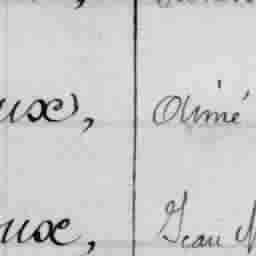 ux, Aimé
ux, Jean